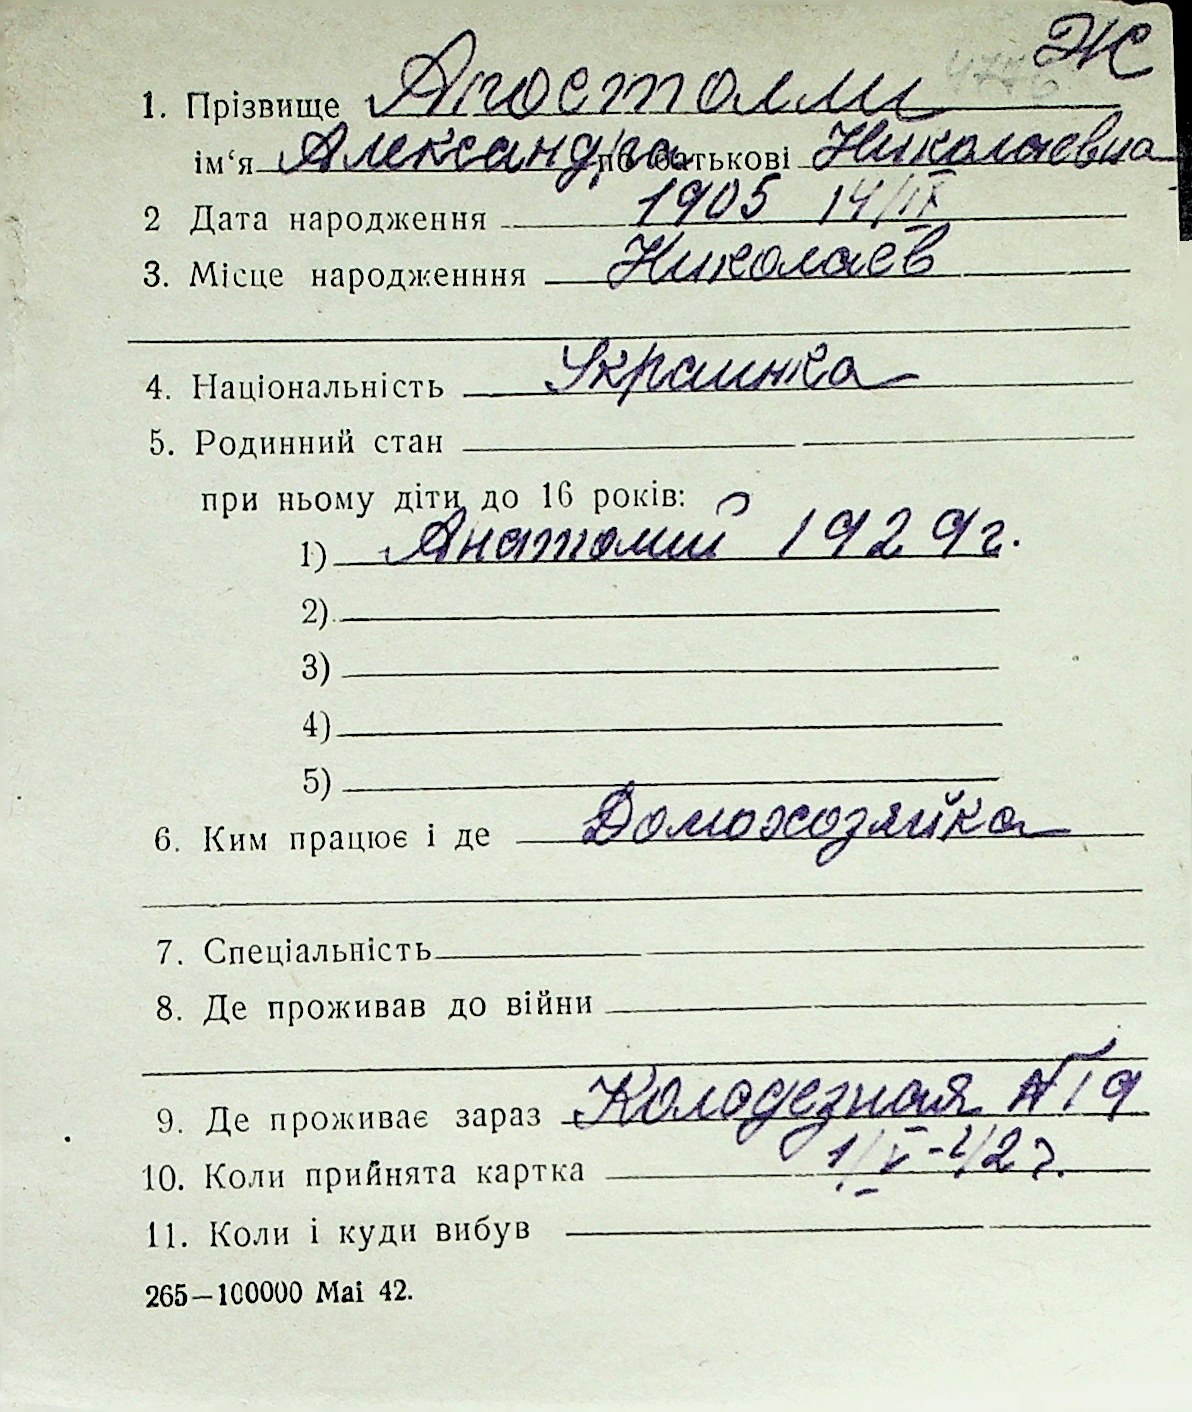 Ж
1. Прізвище Апостолли
ім‘я Александра по батькові Николаевна
2 Дата народження 1905 14/IX
3. Місце народженння Николаев
4. Національність Украинка
5. Родинний стан
при ньому діти до 16 років:
1) Анатолий 1929г.
2)
3)
4)
5)
6. Ким працює і де Домохозяйка
7. Спеціальність
8. Де проживав до війни
9. Де проживає зараз Колодезная №19
10. Коли прийнята картка 1/V-42г.
11. Коли і куди вибув
265—100000 Mai 42.